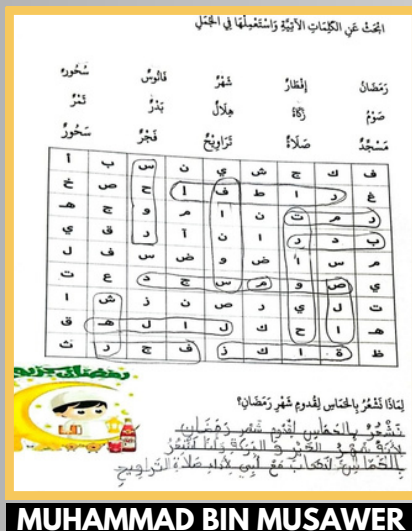 اِبْحَثْ عَنِ الكَلِمَاتِ الآتِيَةِ وَاسْتَعْمِلْهَا فِي الجُمَلِ
رَمَضَانُ إِفْطَارٌ شَهْرٌ فَانُوسٌ سُحُورٌ
صَوْمٌ زَكَاةٌ هِلَالٌ بَدْرٌ تَمْرٌ
مَسْجِدٌ صَلَاةٌ تَرَاوِيحٌ فَجْرٌ سَحُورٌ
ف ل ج ش ي ن س ب أ
غ ر ا ط ف إ ح ص خ
ر م ت ن ا م و ع هـ
ب د ر ا ن آ ر ق ي
م س ا ض و ض س ف ل
ي ص و م س ج د ع ت
ت ل ي ر ص ن ز ش ا
هـ ا ح ك ل ا ل هـ ق
ظ ة ا ك ز ف ج ر ث
لِمَاذَا نَشْعُرُ بِالحَمَاسِ لِقُدومِ شَهْرِ رَمَضَانِ؟
نَشْعُرُ بِالحَمَاسِ لِقُدُومِ شَهْرِ رَمَضَانِ
لِأَنَّهُ شَهْرُ الخَيْرِ وَ البَرَكَةِ وَأَنَا أَشْعُرُ
بِالحَمَاسِ مَعَ أَبِي لِأَدَاءِ صَلَاةِ التَّرَاوِيحِ
MUHAMMAD BIN MUSAWER